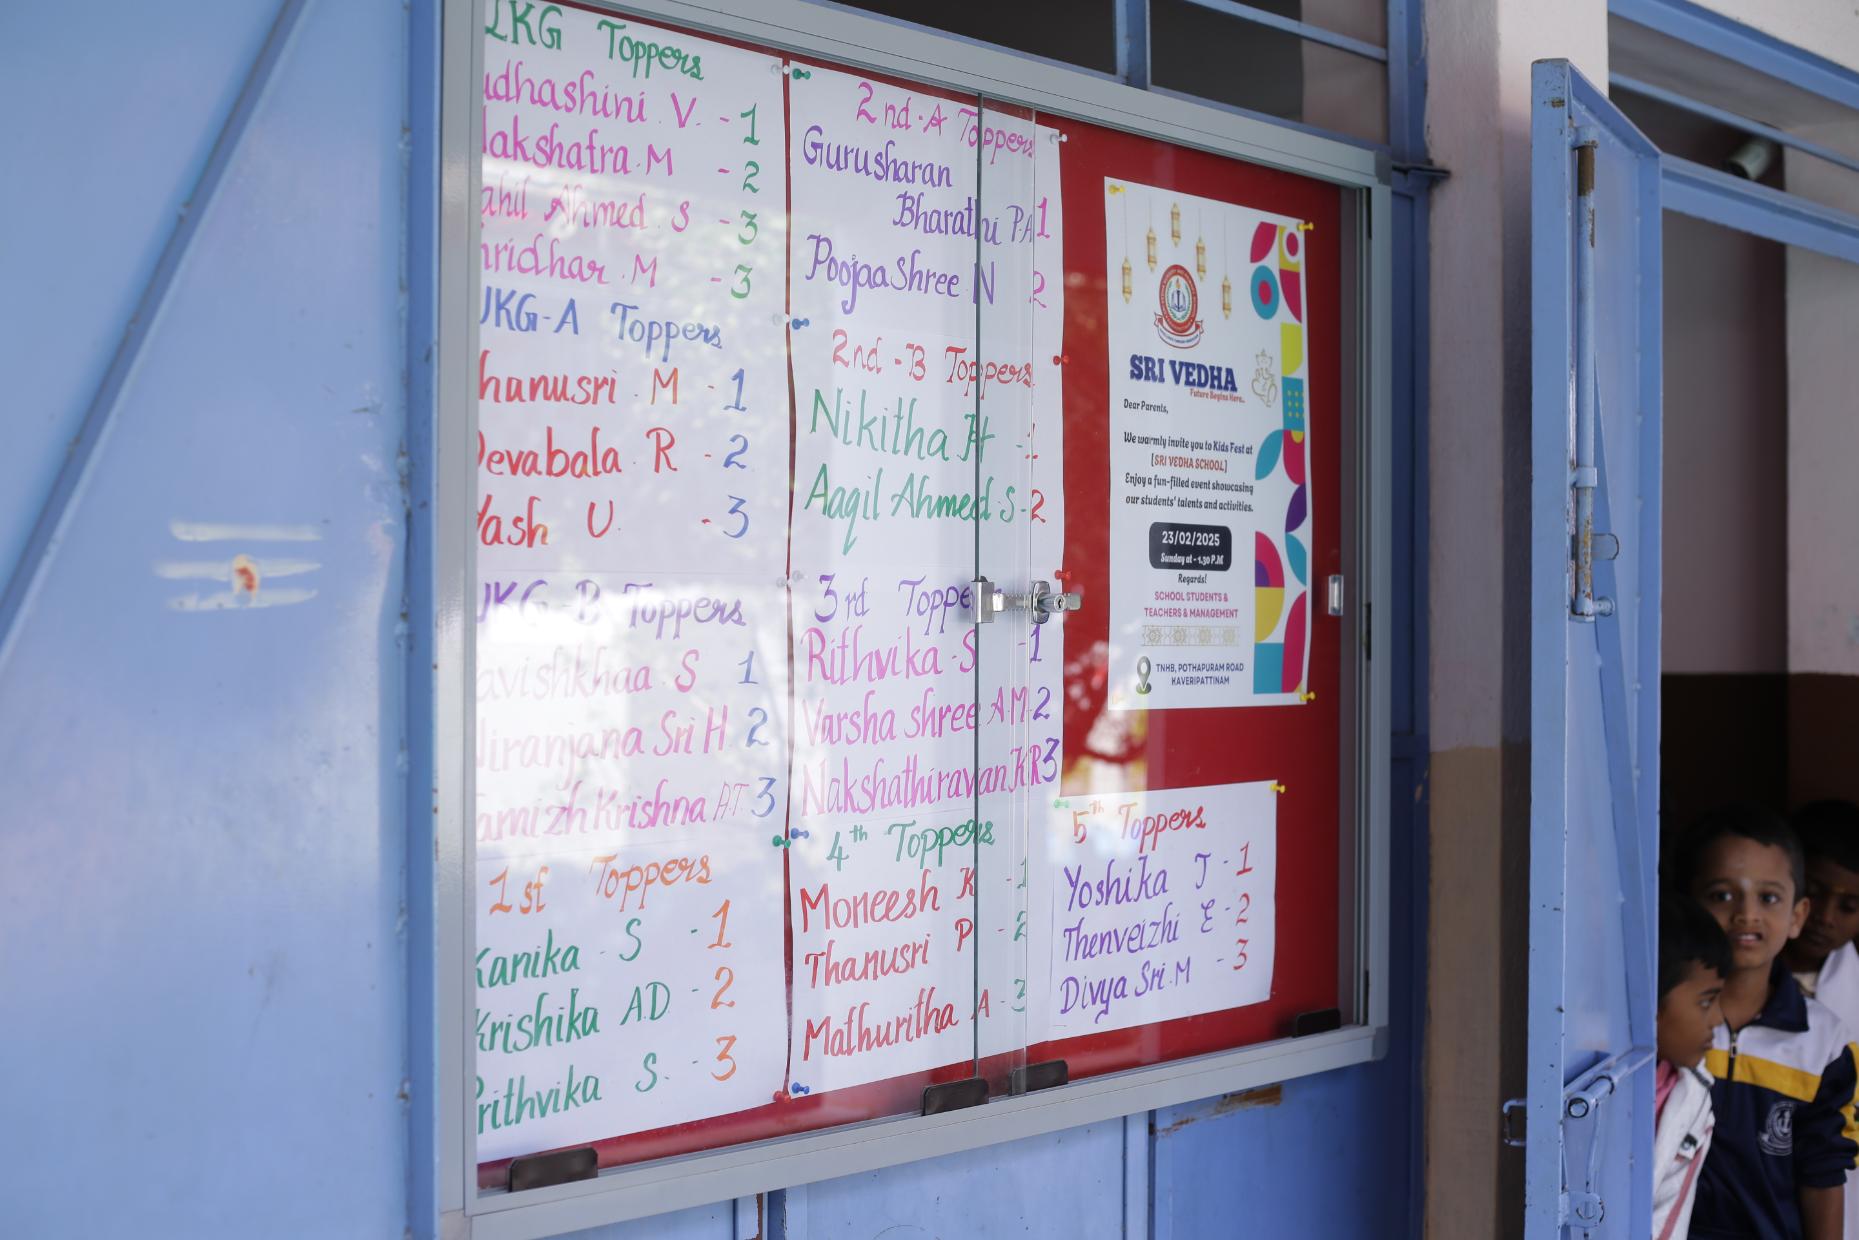 LKG Toppers
udhashini V. - 1
akshatra. M - 2
ahil Ahmed S - 3
hridhar. M - 3
UKG-A Toppers
hanusri. M - 1
Devabala. R - 2
Yash U. - 3
UKG-B Toppers
avishkhaa. S 1
Niranjana Sri H 2
amizh Krishna AT 3
1st Toppers
Kanika S - 1
Krishika A.D - 2
rithvika S. - 3
2nd-A Toppers
Gurusharan
Bharathi P.A 1
Poojaa Shree N 2
2nd-B Toppers
Nikitha H - 1
Aaqil Ahmed S - 2
3rd Toppe
Rithvika. S - 1
Varsha shree A.M - 2
Nakshathiravan K R 3
4th Toppers
Moneesh K - 1
Thanusri P - 2
Mathuritha A - 3
SRI VEDHA
Future Begins Here..
Dear Parents,
We warmly invite you to Kids Fest at
[SRI VEDHA SCHOOL]
Enjoy a fun-filled event showcasing
our students' talents and activities.
23/02/2025
Sunday at - 1.30 P.M
Regards!
SCHOOL STUDENTS &
TEACHERS & MANAGEMENT
TNHB, POTHAPURAM ROAD
KAVERIPATTINAM
5th Toppers
Yoshika J - 1
Thenveizhi E - 2
Divya Sri. M - 3